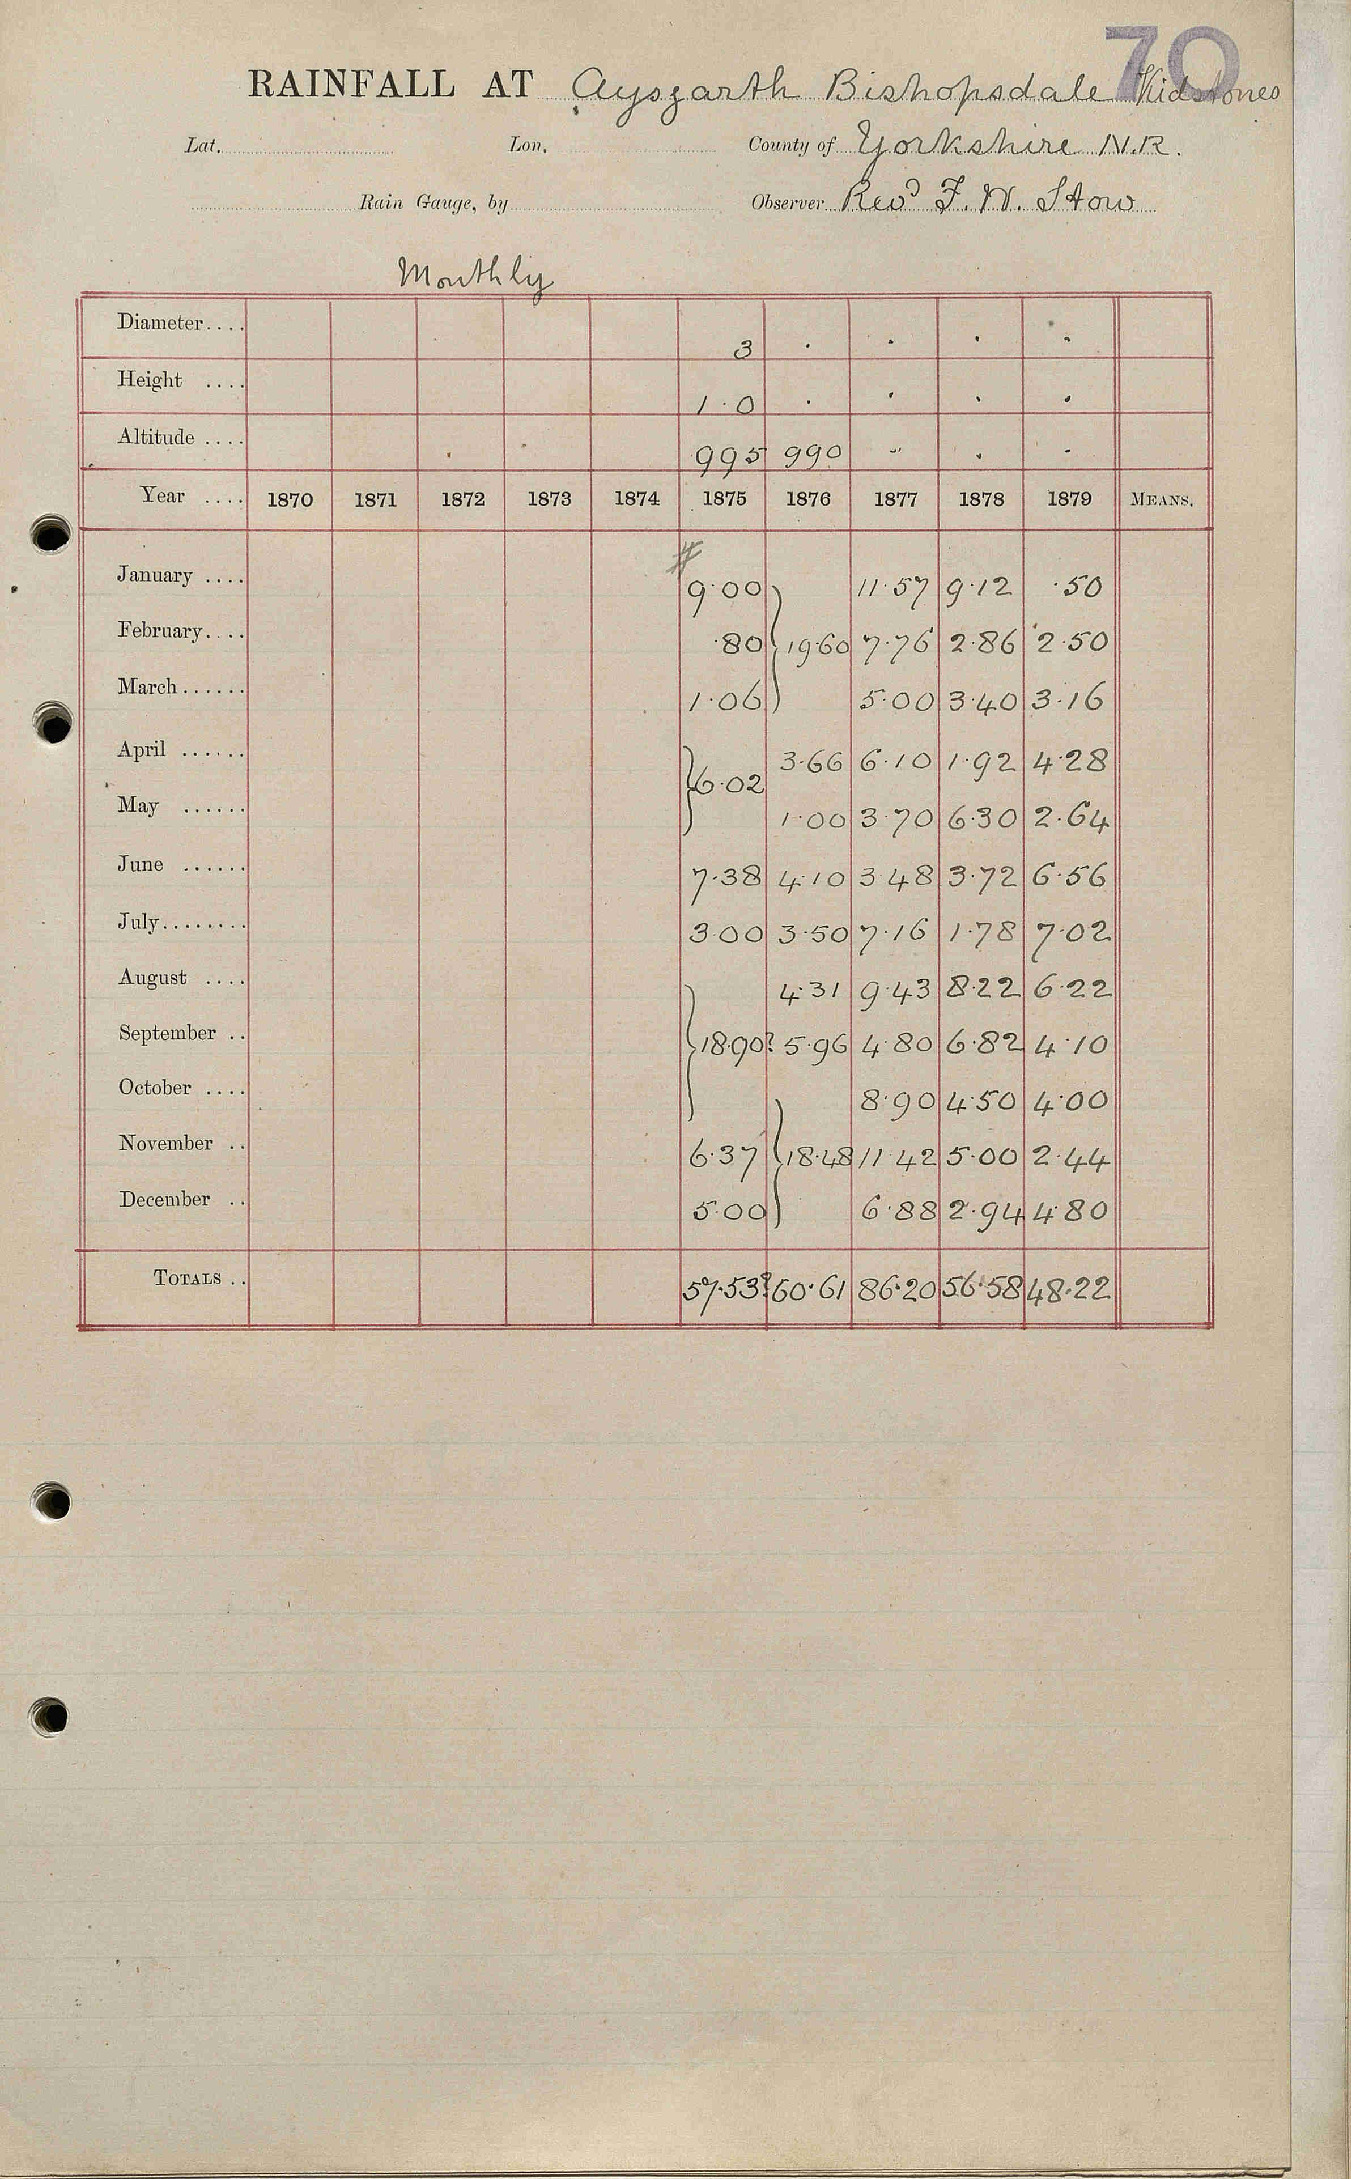 70
RAINFALL AT Aysgarth Bishopsdale Kidstones
Lat. Lon. County of Yorkshire N.R.
Rain Gauge, by Observer Revd F. W. Stow
Monthly
Diameter.... 3 . . . .
Height .... 1.0 . . . .
Altitude .... 995 990 " . .
Year .... 1870 1871 1872 1873 1874 1875 1876 1877 1878 1879 MEANS.
#
January .... 9.00 11.57 9.12 .50
February.... .80 } 19.60 7.76 2.86 2.50
March...... 1.06 5.00 3.40 3.16
April ...... 3.66 6.10 1.92 4.28
} 6.02
May ...... 1.00 3.70 6.30 2.64
June ...... 7.38 4.10 3.48 3.72 6.56
July........ 3.00 3.50 7.16 1.78 7.02
August .... 4.31 9.43 8.22 6.22
September .. } 18.90? 5.96 4.80 6.82 4.10
October .... 8.90 4.50 4.00
November .. 6.37 } 18.48 11.42 5.00 2.44
December .. 5.00 6.88 2.94 4.80
TOTALS .. 57.53? 60.61 86.20 56.58 48.22